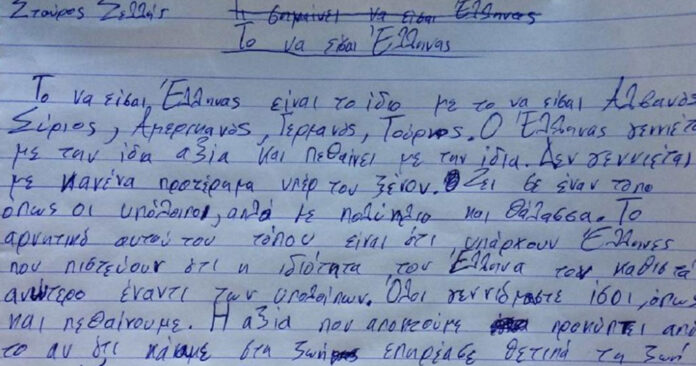 Σταύρος Ζελλής Τι σημαίνει να είσαι Έλληνας
Το να είσαι Έλληνας
Το να είσαι Έλληνας είναι το ίδιο με το να είσαι Αλβανός
Σύριος, Αμερικανός, Γερμανός, Τούρκος. Ο Έλληνας γεννιέτ
με την ίδια αξία και πεθαίνει με την ίδια. Δεν γεννιέται
με κανένα προτέρημα υπέρ του ξένου. Ζει σε έναν τόπο
όπως οι υπόλοιποι, απλά με πολύ ήλιο και θάλασσα. Το
αρνητικό αυτού του τόπου είναι ότι υπάρχουν Έλληνες
που πιστεύουν ότι η ιδιότητα του Έλληνα τον καθιστά
ανώτερο έναντι των υπολοίπων. Όλοι γεννιόμαστε ίσοι, όπω
και πεθαίνουμε. Η αξία που αποκτούμε προκύπτει από
το αν ότι κάναμε στη ζωή επηρέασε θετικά τη ζωή